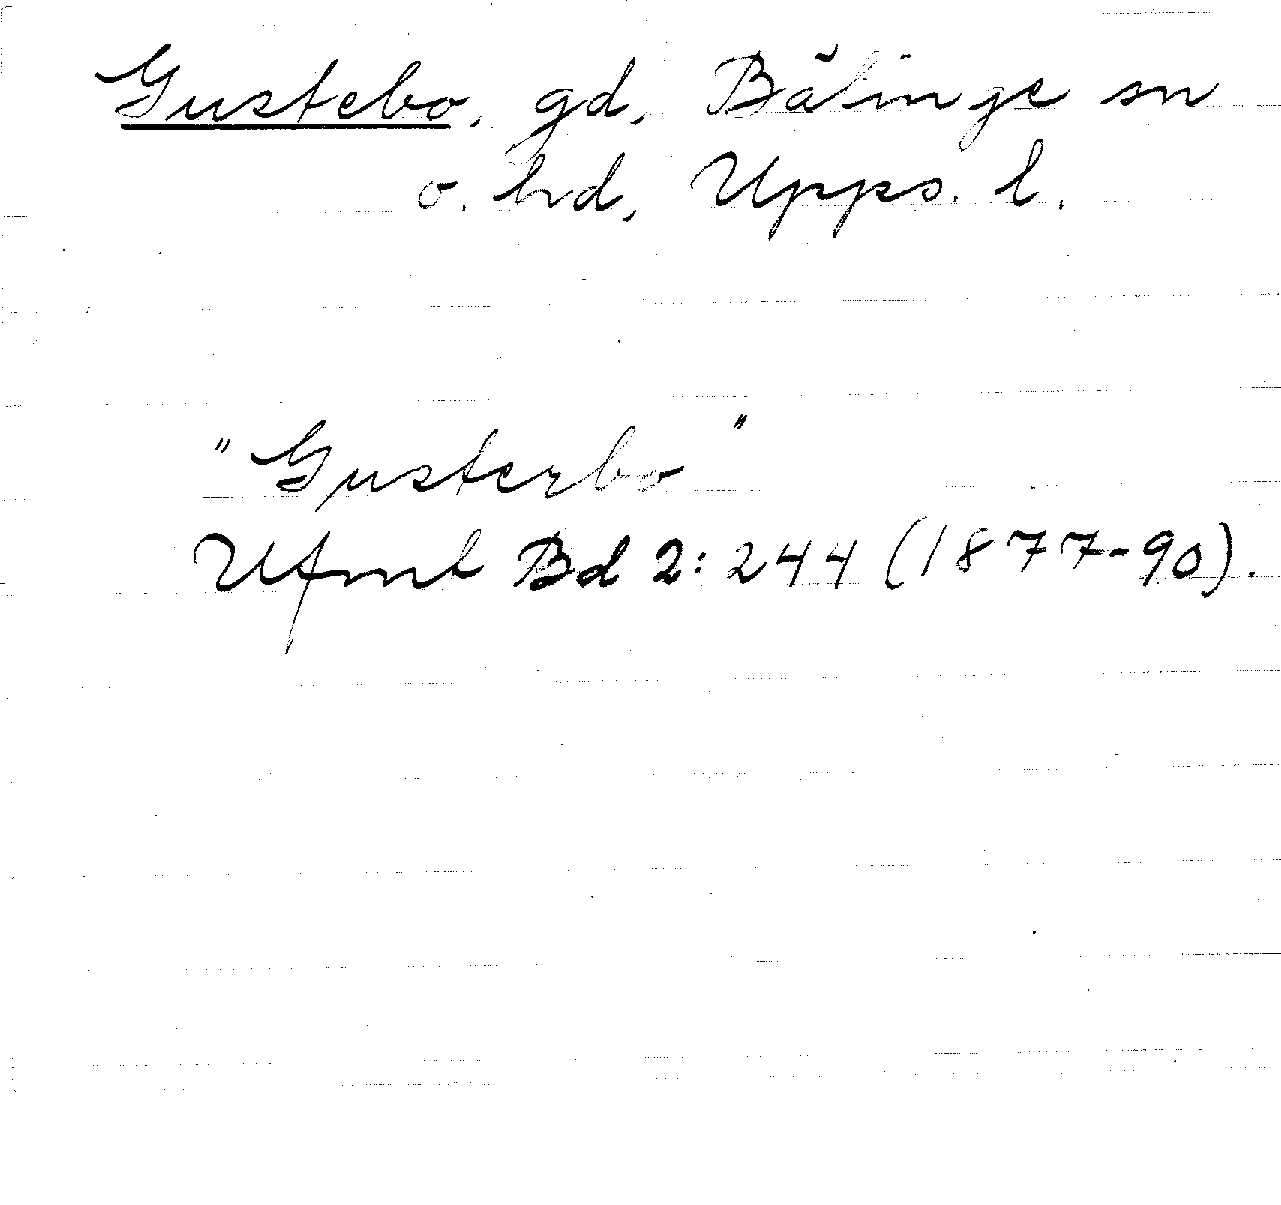 Gustebo, gd, Bälinge sn
o. hd, Upps. l.
"Gusterbo"
Ufmt Bd 2: 244 (1877-90).